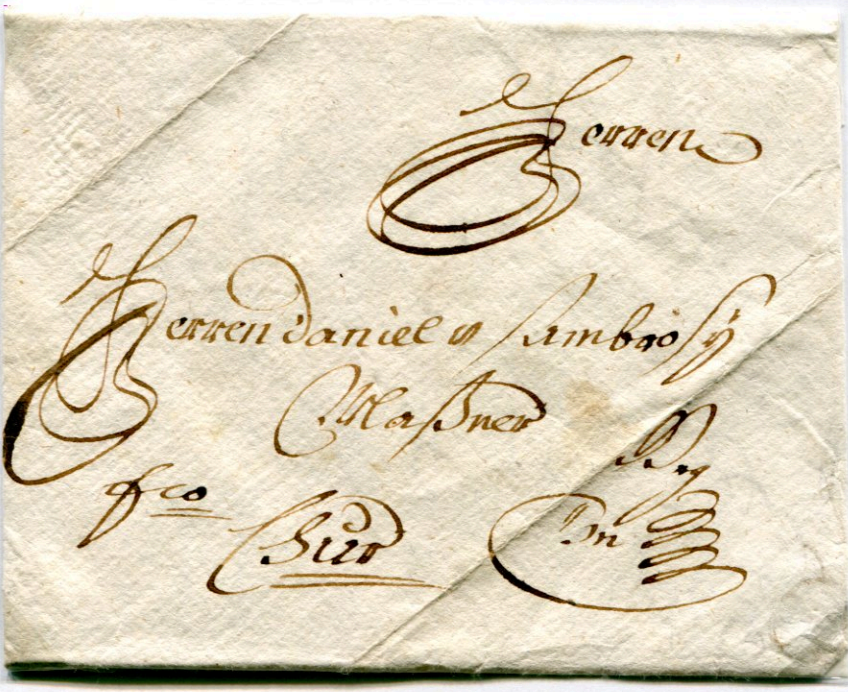 Herren
Herren Daniel u Ambrosÿ
Maßner
fco
Chur
In